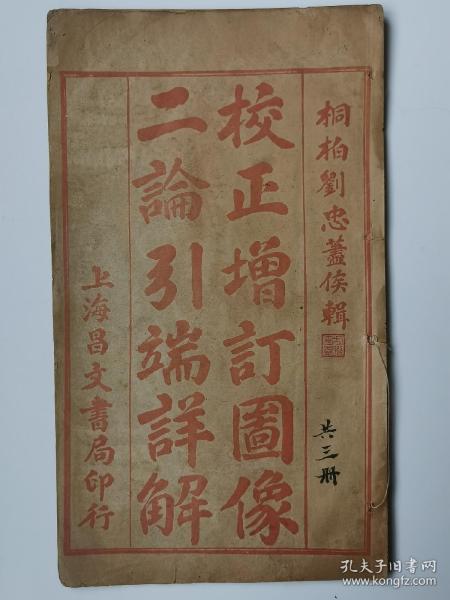 桐柏劉忠藎侯輯
校正增訂圖像
二論引端詳解
上海昌文書局印行
共三册
孔夫子旧书网
www.kongfz.com